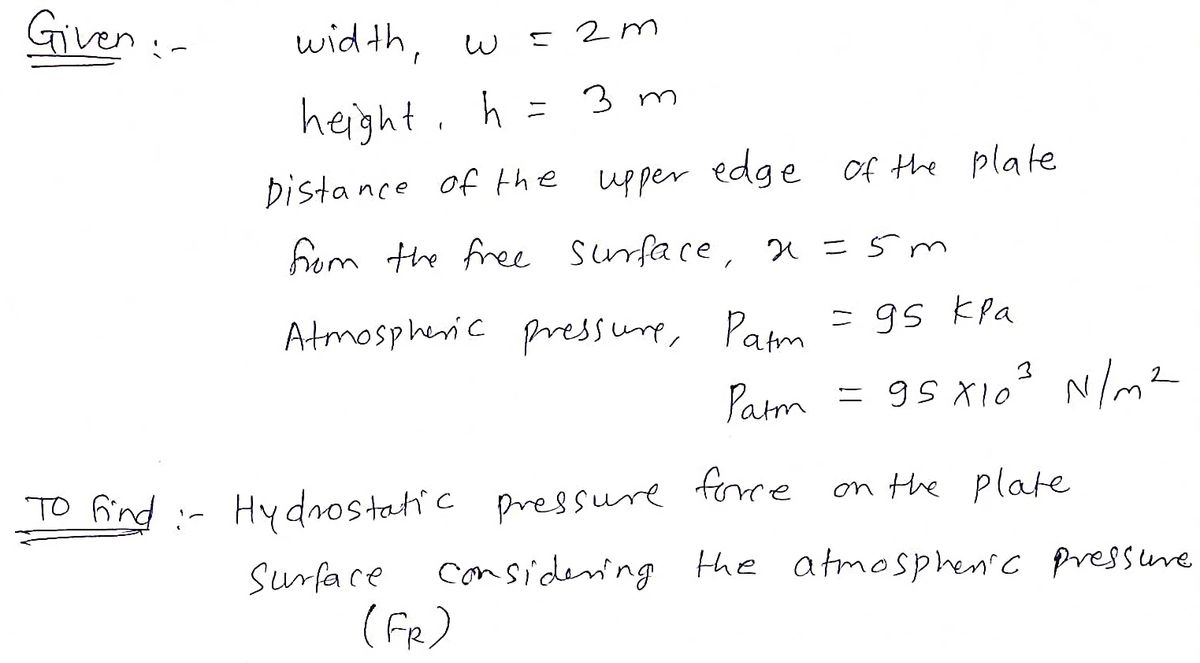 Given :- width, w = 2 m
height, h = 3 m
Distance of the upper edge of the plate
from the free surface, x = 5 m
Atmospheric pressure, Patm = 95 kPa
Patm = 95 X10³ N/m²
To find :- Hydrostatic pressure force on the plate
Surface considering the atmospheric pressure
(FR)